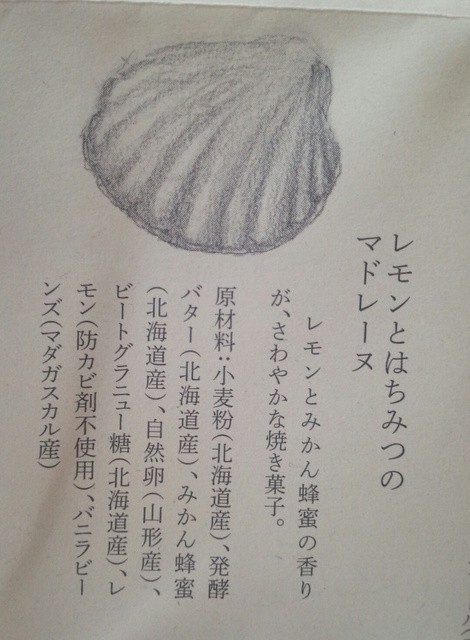 レモンとはちみつの
マドレーヌ
レモンとみかん蜂蜜の香り
が、さわやかな焼き菓子。
原材料：小麦粉(北海道産)、発酵
バター(北海道産)、みかん蜂蜜
(北海道産)、自然卵(山形産)、
ビートグラニュー糖(北海道産)、レ
モン(防カビ剤不使用)、バニラビー
ンズ(マダガスカル産)